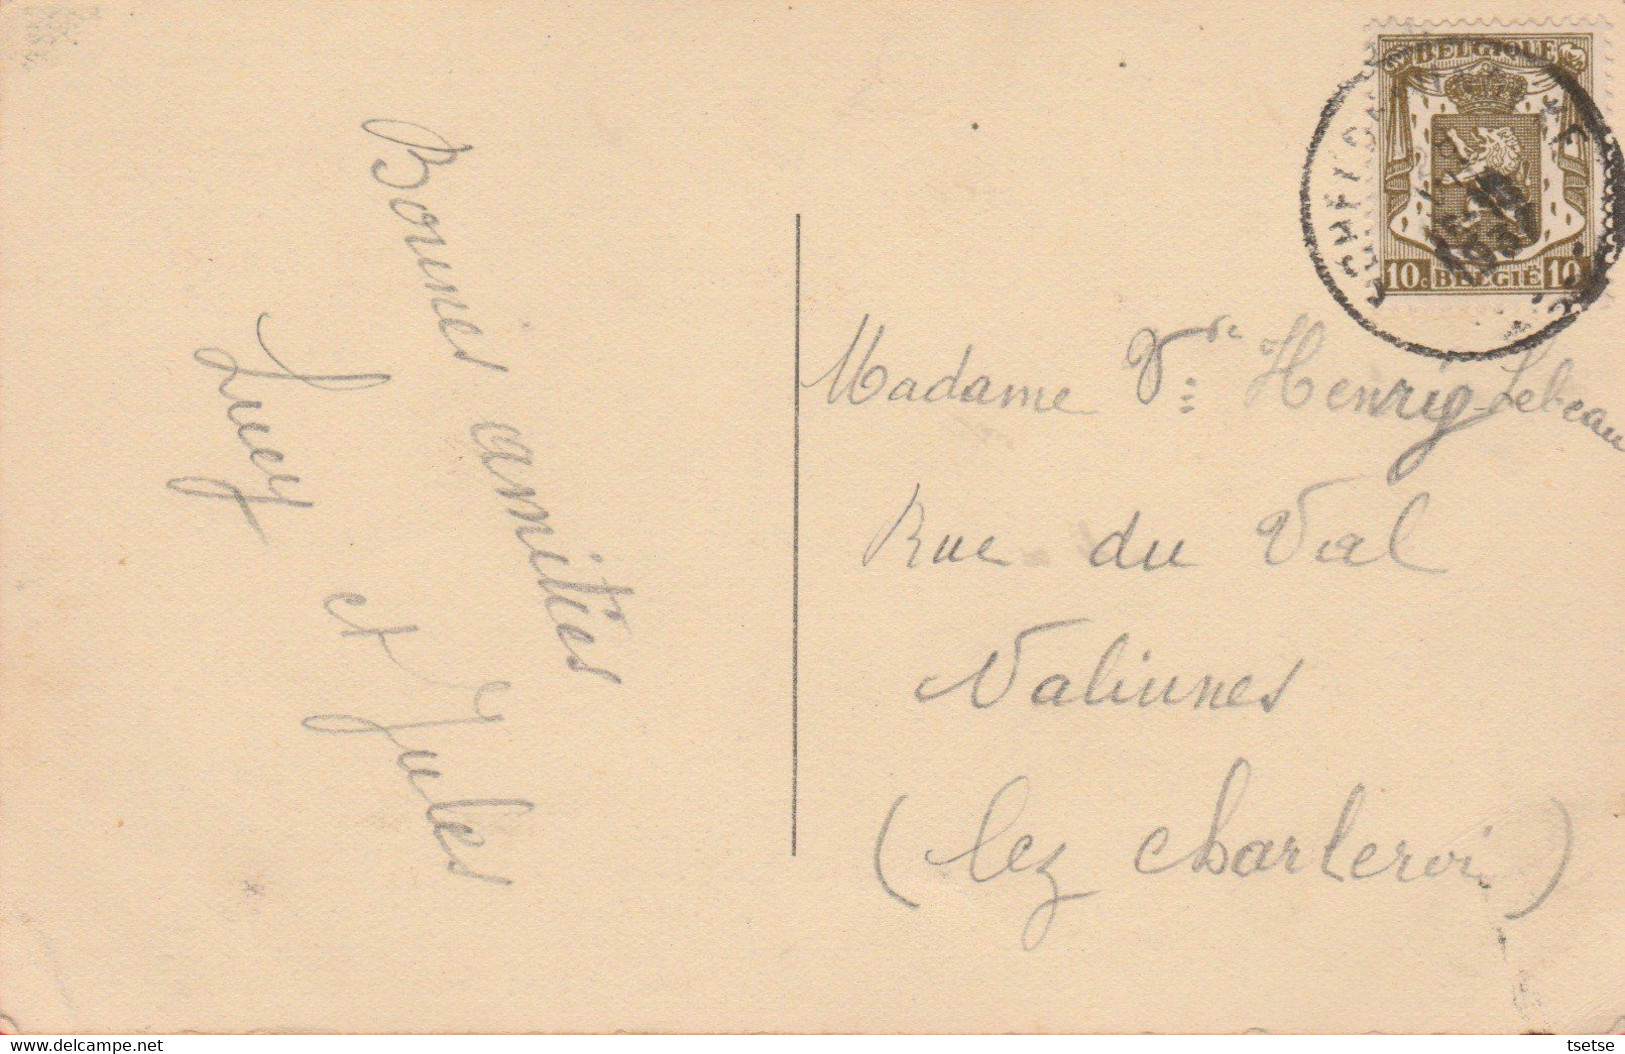 Bonnes amitiés
Lucy
et Jules
BELGIQUE
10c BELGIE 10c
Madame Vve Henry-Lebeau
Rue du Val
Daliunes
(lez charleroi)
delcampe.net
tsetse